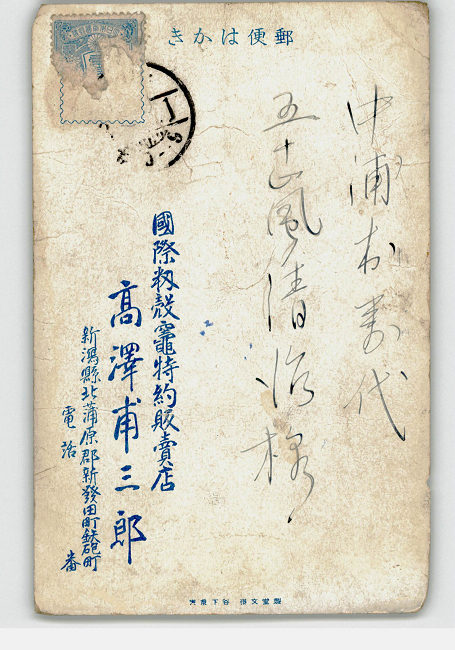 郵便はかき
中浦村万代
五十嵐清治様
國際籾殻竈特約販賣店
高澤甫三郎
新潟縣北蒲原郡新發田町鉄砲町
電話 番